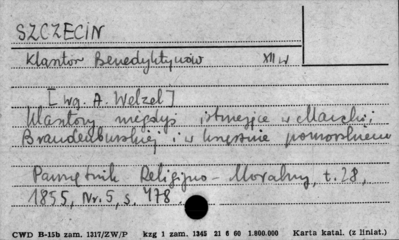 SZCZECIN
Klasztór Benedyktynów XII w
[Wg. A. Welzel]
Klasztory niegdyś istniejące w Marchii
Brandenburskiej i w księstwie pomorskiem
Pamiętnik Religijno-Moralny, t. 28,
1855, Nr. 5, s. 478.
CWD B-15b zam. 1217/ZW/P kzg 1 zam. 1345 21 6 60 1.800.000 Karta katal. (z liniat.)